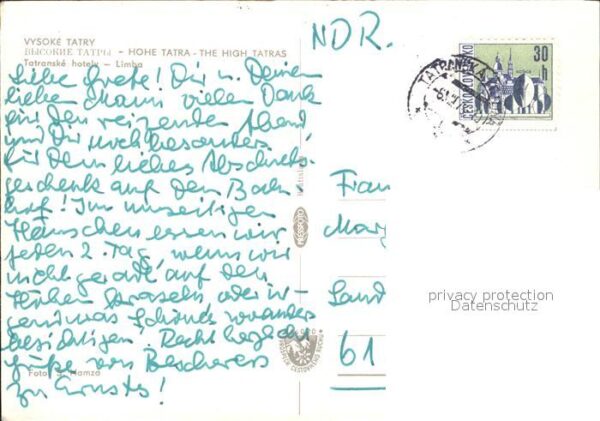 VYSOKÉ TATRY
ВЫСОКИЕ ТАТРЫ - HOHE TATRA - THE HIGH TATRAS
Tatranské hotely - Limba
Liebe Grete! Dir u. Deinem
lieben Mann vielen Dank
für den reizenden Abend
und Dir noch besonders
für Dein liebes Abschieds-
geschenk auf dem Bahn-
hof! Im
Häuschen essen wir
jeden 2. Tag, wenn wir
nicht gerade auf den
Höhen kraxeln, oder ir-
gend was Schönes woanders
besichtigen. Recht herzliche
Grüße von
zu Ernsts!
Foto: Hamza
PRESSFOTO
NDR.
ČESKOSLOVENSKO
30
h
Frau
Mar
Sand
61
privacy protection
Datenschutz